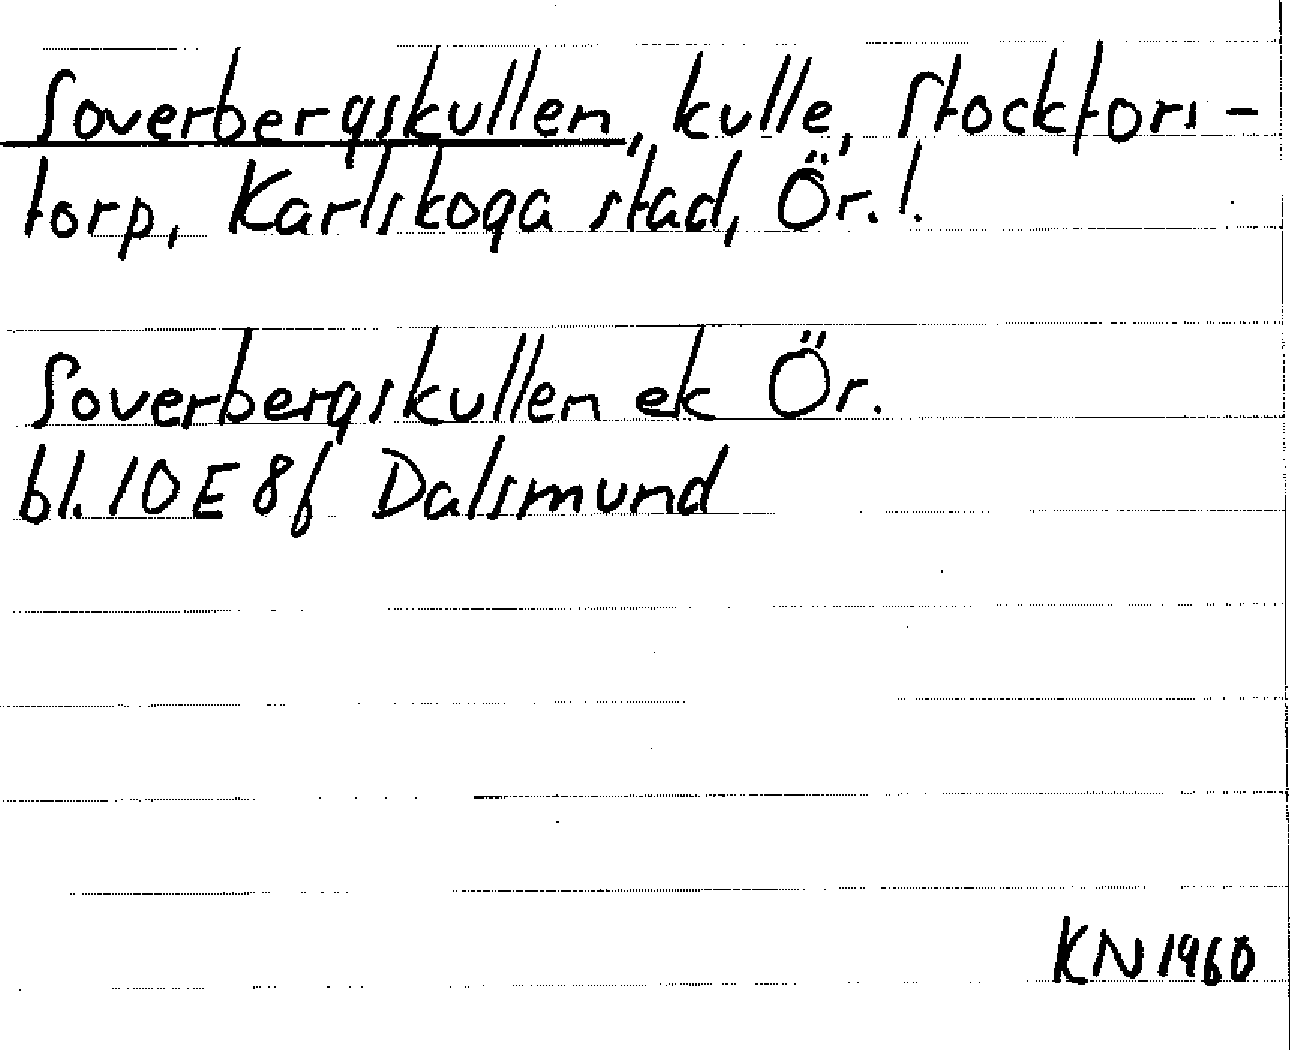 Soverbergskullen, kulle, Stockfors-
torp, Karlskoga stad, Ör. l.
Soverbergskullen ek Ör.
bl. 10 E 8f Dalsmund
KN 1960